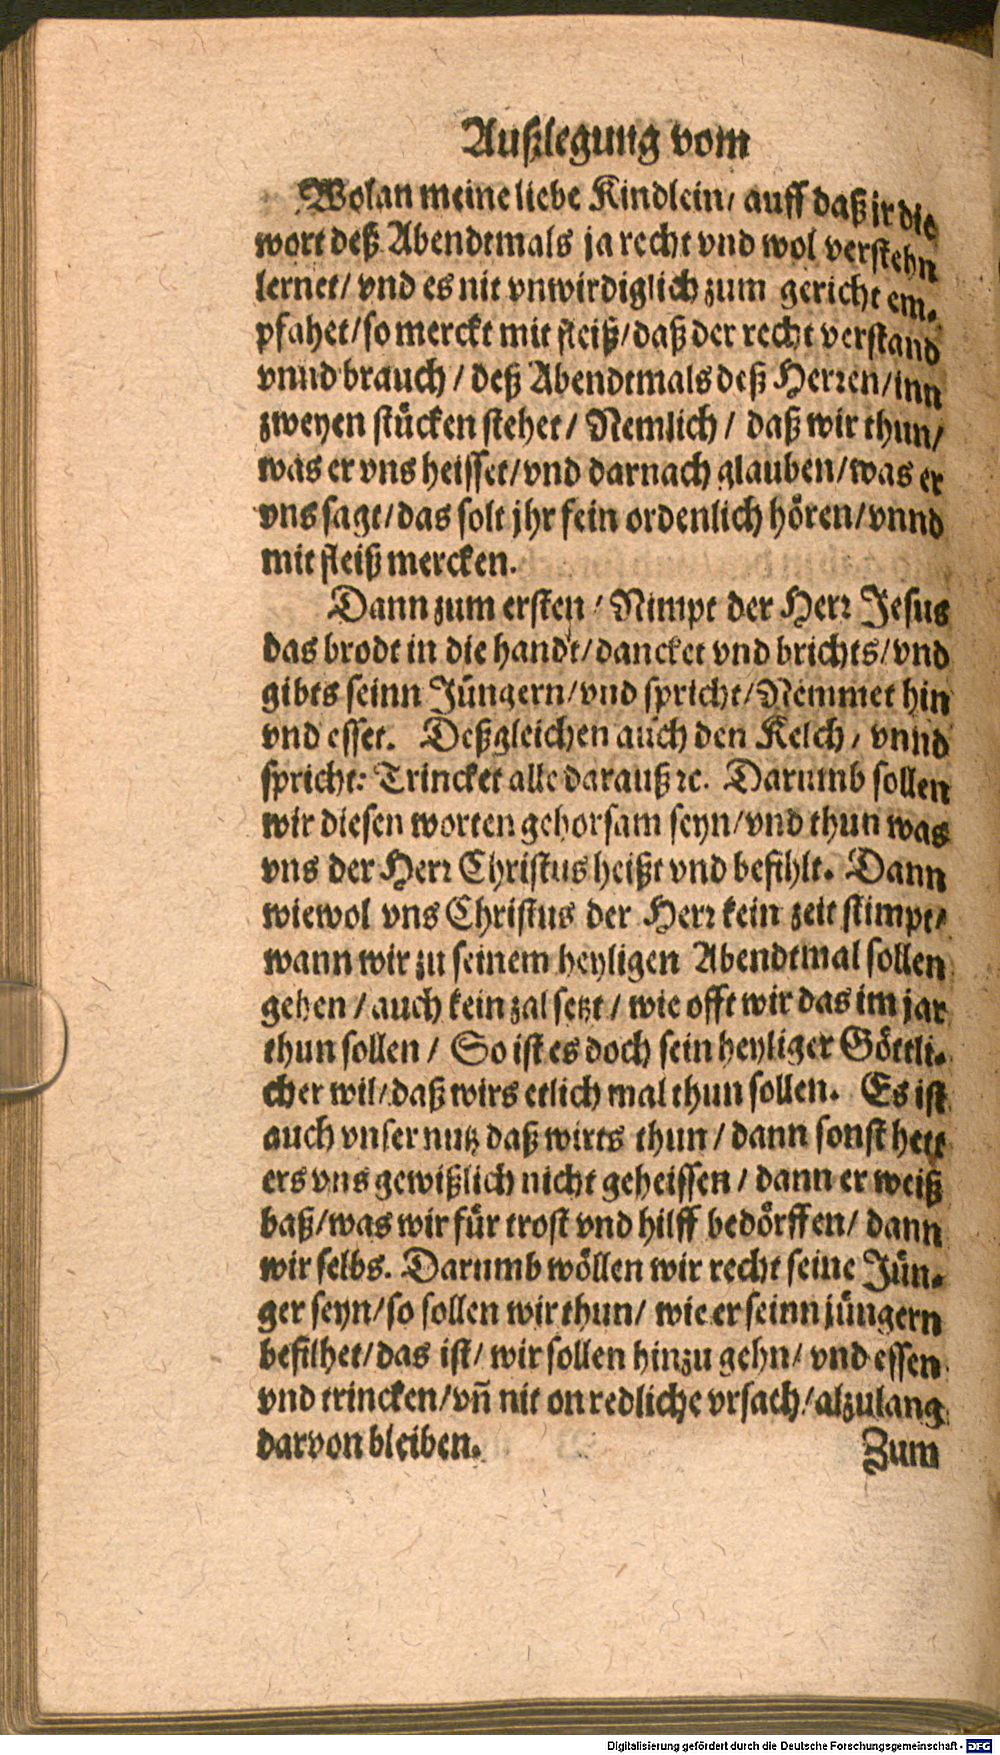 Außlegung vom
Wolan meine liebe Kindlein/ auff daß ir die
wort deß Abendtmals ja recht vnd wol verstehn
lernet/ vnd es nit vnwirdiglich zum gericht em-
pfahet/ so merckt mit fleiß/ daß der recht verstand
vnnd brauch / deß Abendtmals deß Herren/ inn
zweyen stücken stehet/ Nemlich / daß wir thun/
was er vns heisset/ vnd darnach glauben/ was er
vns sagt/ das solt jhr fein ordenlich hören/ vnnd
mit fleiß mercken.
Dann zum ersten / Nimpt der Herr Jesus
das brodt in die handt/ dancket vnd brichts/ vnd
gibts seinn Jüngern/ vnd spricht/ Nemmet hin
vnd esset. Deßgleichen auch den Kelch / vnnd
spricht: Trincket alle darauß ꝛc. Darumb sollen
wir diesen worten gehorsam seyn/ vnd thun was
vns der Herr Christus heißt vnd befihlt. Dann
wiewol vns Christus der Herr kein zeit stimpt/
wann wir zu seinem heyligen Abendtmal sollen
gehen / auch kein zal setzt / wie offt wir das im jar
thun sollen / So ist es doch sein heyliger Göttli-
cher wil/ daß wirs etlich mal thun sollen. Es ist
auch vnser nutz daß wirts thun / dann sonst hett
ers vns gewißlich nicht geheissen / dann er weiß
baß/ was wir für trost vnd hilff bedörffen/ dann
wir selbs. Darumb wöllen wir recht seine Jün-
ger seyn/ so sollen wir thun/ wie er seinn jüngern
befilhet/ das ist/ wir sollen hinzu gehn/ vnd essen
vnd trincken/ vñ nit on redliche vrsach/ alzulang
darvon bleiben.
Zum
Digitalisierung gefördert durch die Deutsche Forschungsgemeinschaft - DFG